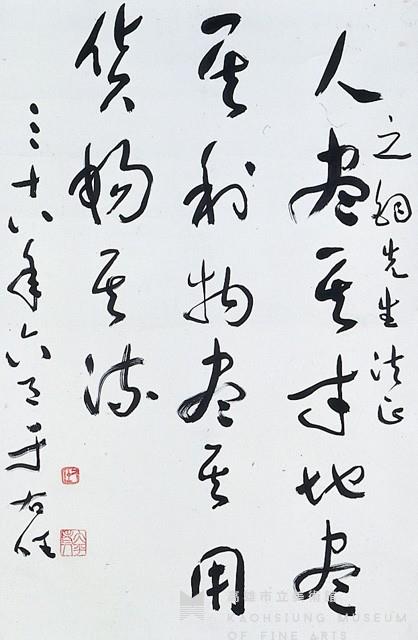 之 先生法正
人盡其才地盡
其利物盡其用
貨暢其流
三十八年六月于右任
高雄市立美術館
KAOHSIUNG MUSEUM
OF FINE ARTS